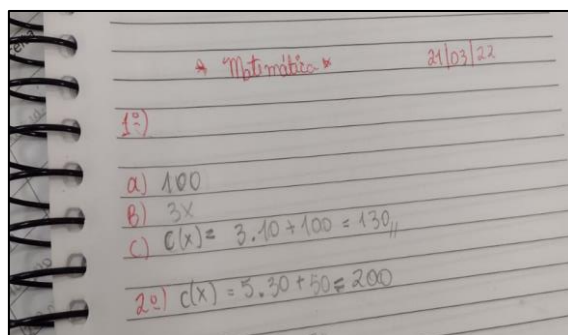 * Matemática * 21/03/22
1º)
a) 100
B) 3x
C) C(x) = 3.10 + 100 = 130,,
2º) C(x) = 5.30 + 50 = 200